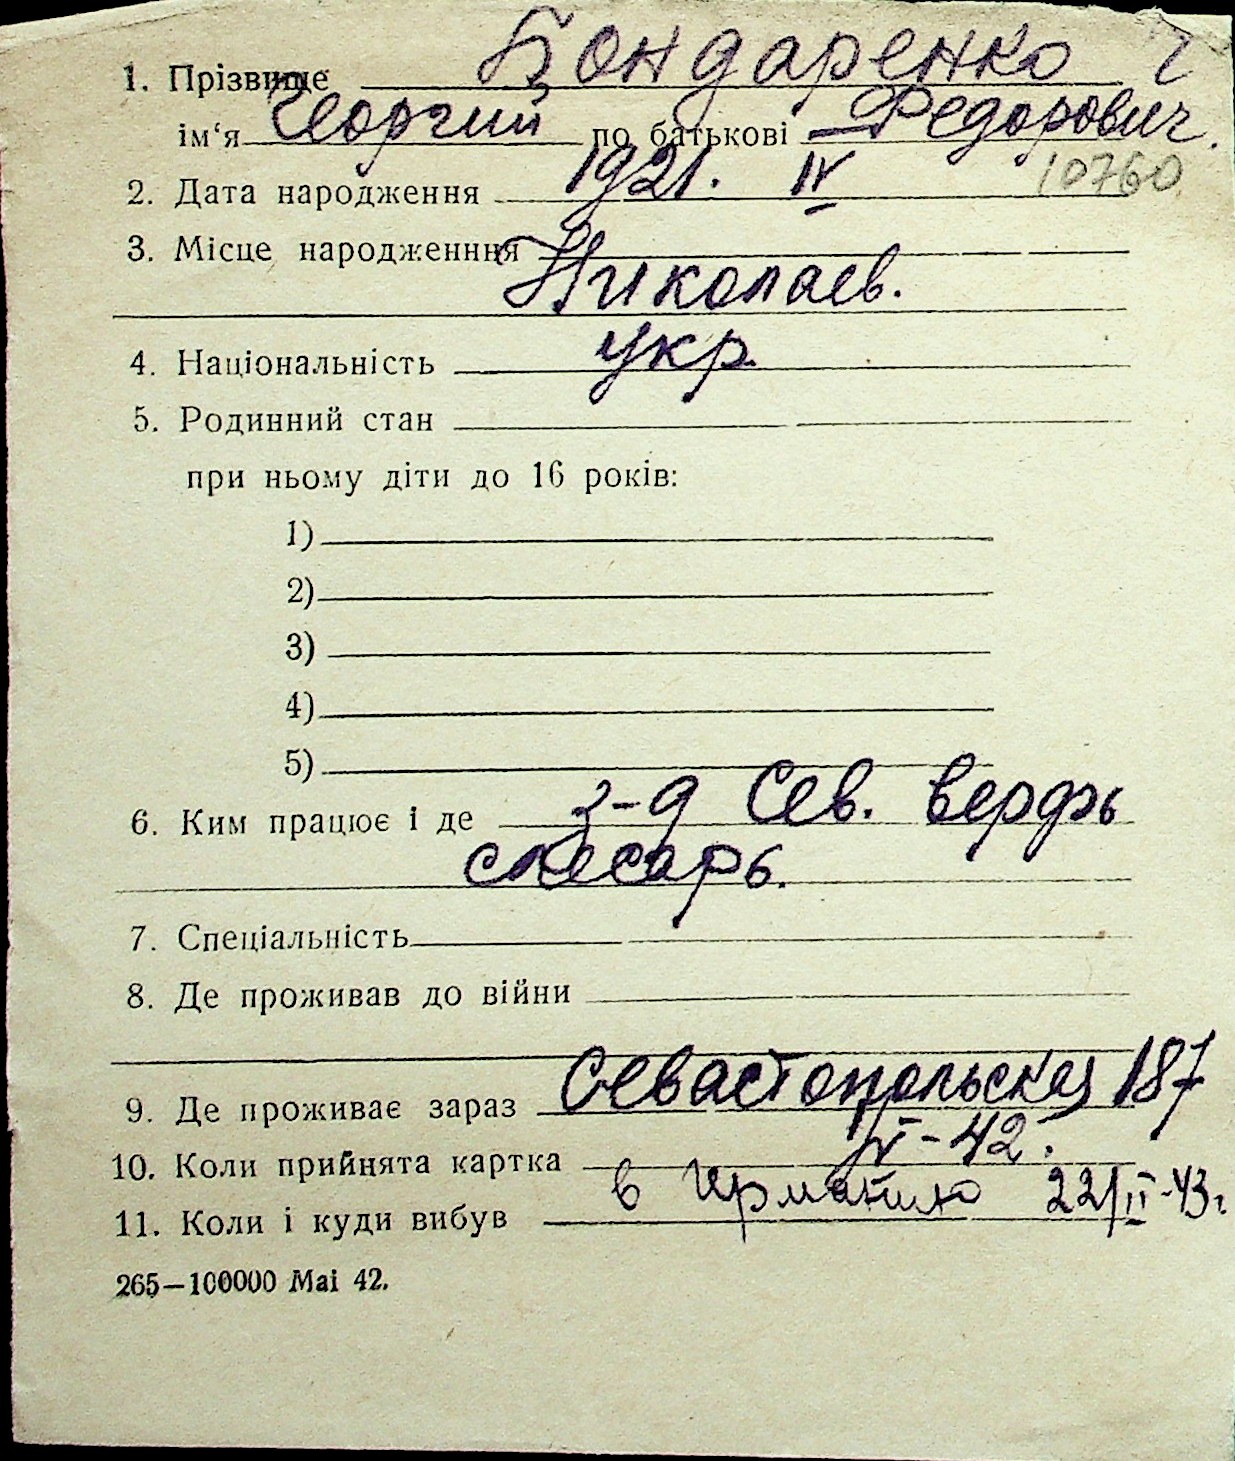 1. Прізвище Бондаренко
ім‘я Георгий по батькові Федорович.
2. Дата народження 1921. IV 10760
3. Місце народженння
Николаев.
4. Національність укр.
5. Родинний стан
при ньому діти до 16 років:
1)
2)
3)
4)
5)
6. Ким працює і де з-д Сев. верфь
слесарь.
7. Спеціальність
8. Де проживав до війни
9. Де проживає зараз Севастопольская 187
10. Коли прийнята картка IV-42.
11. Коли і куди вибув в Германию 22/II-43г.
265—100000 Mai 42.